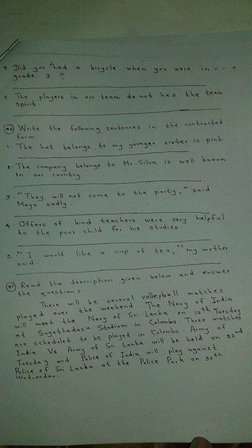 4. Did you had a bicycle when you were in a
grade 3 ?
5. The players in our team do not has the team
spirit
Write the following sentences in the contracted
form
1. The hat belongs to my younger sister is pink
2. The company belongs to Mr Silva is well known
in our country.
3. "They will not come to the party," said
Maya sadly.
4. Offers of kind teachers were very helpful
to the poor child for his studies
5. "I would like a cup of tea," my mother
said.
Read the description given below and answer
the questions
There will be several volleyball matches
played over the weekend. The Navy of India
will meet the Navy of Sri Lanka on Tuesday
at Sugathadasa Stadium in Colombo. Three matches
are scheduled to be played in Colombo. Army of
India Vs Army of Sri Lanka will be held on
Tuesday and Police of India will play against
Police of Sri Lanka at the Police Park on 30th
Wednesday.